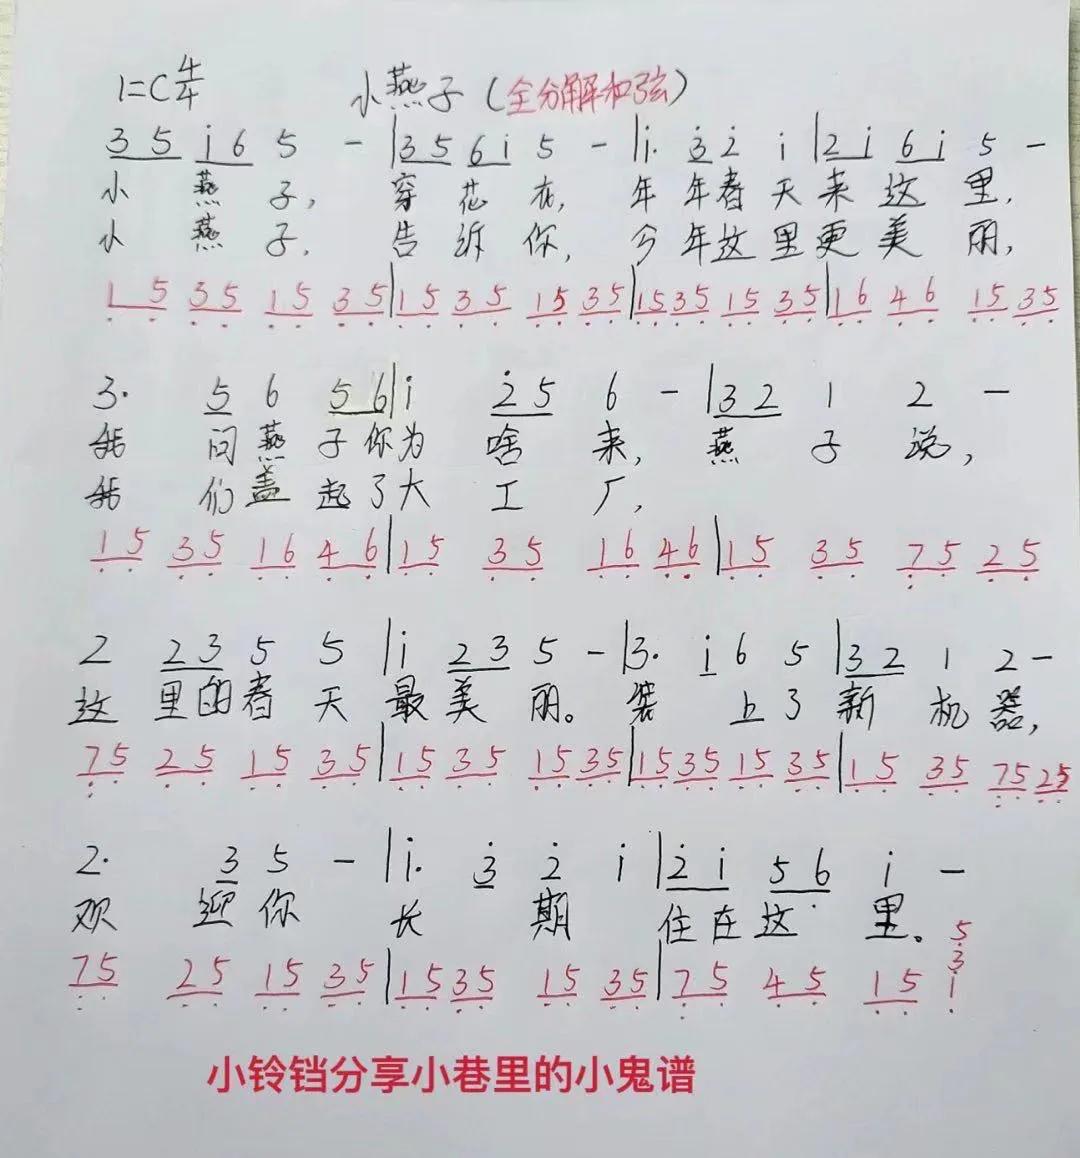 1=C 4/4 小燕子(全分解和弦)
3 5 i 6 5 - |3 5 6 i 5 - |i. 3̇ 2̇ i |2̇ i 6 i 5 -
小 燕 子, 穿 花 衣, 年 年春 天 来 这 里,
小 燕 子, 告 诉 你, 今 年这 里更 美 丽,
1 5 3 5 1 5 3 5|1 5 3 5 1 5 3 5|1 5 3 5 1 5 3 5|1 6 4 6 1 5 3 5
3. 5 6 5 6|i 2̇ 5 6 - |3 2 1 2 -
我 问 燕 子 你为 啥 来, 燕 子 说,
我 们 盖 起 了 大 工 厂,
1 5 3 5 1 6 4 6|1 5 3 5 1 6 4 6|1 5 3 5 7 5 2 5
2 2 3 5 5 |i 2 3 5 - |3. i 6 5 |3 2 1 2 -
这 里的 春 天 最 美 丽。 装 上 了 新 机 器,
7 5 2 5 1 5 3 5|1 5 3 5 1 5 3 5|1 5 3 5 1 5 3 5|1 5 3 5 7 5 2 5
2. 3 5 - |i. 3̇ 2̇ i |2̇ i 5 6 i -
欢 迎 你 长 期 住 在 这 里。
7 5 2 5 1 5 3 5|1 5 3 5 1 5 3 5|7 5 4 5 1 5 5 3 1
小铃铛分享小巷里的小鬼谱